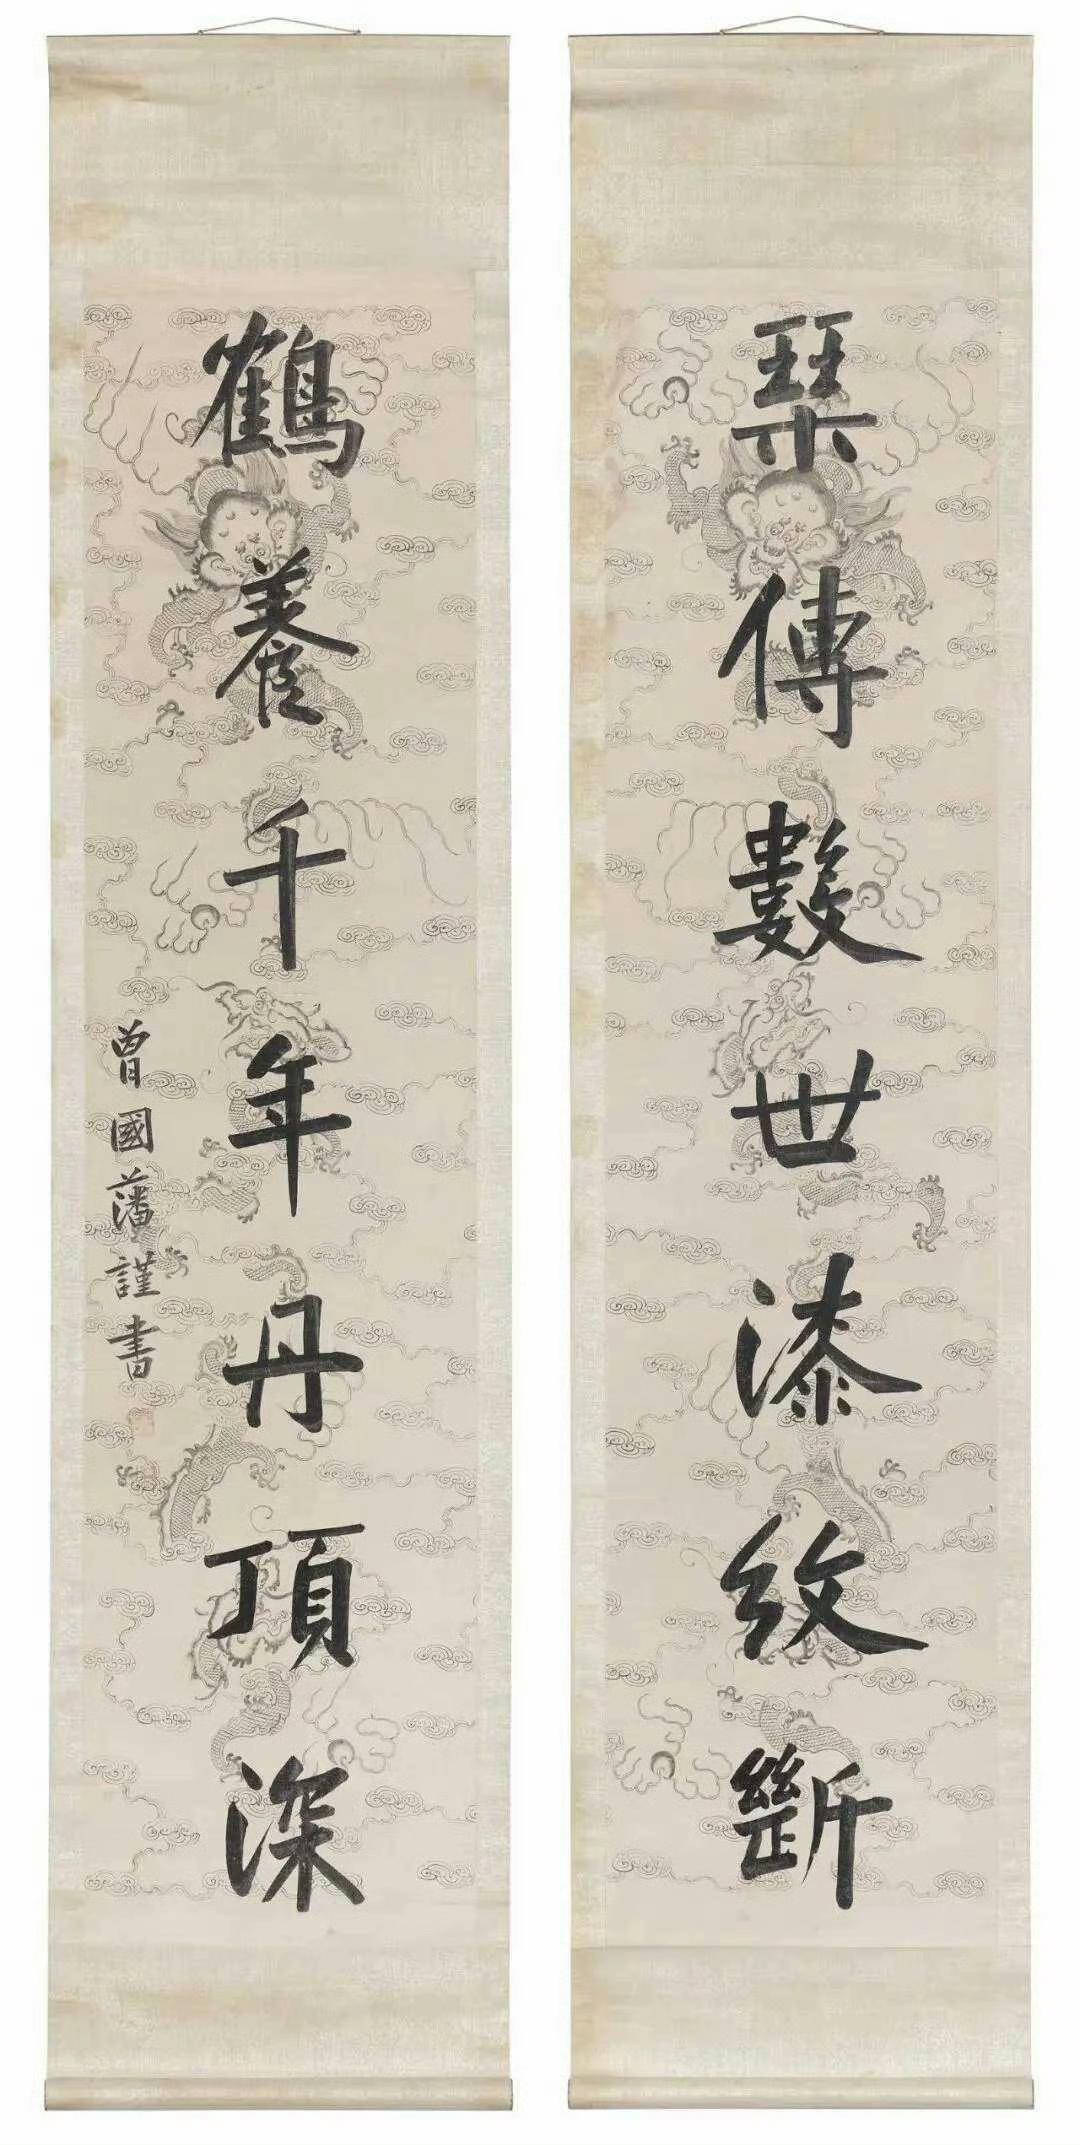 琴傳數世漆紋斷
鶴養千年丹頂深
曾國藩謹書